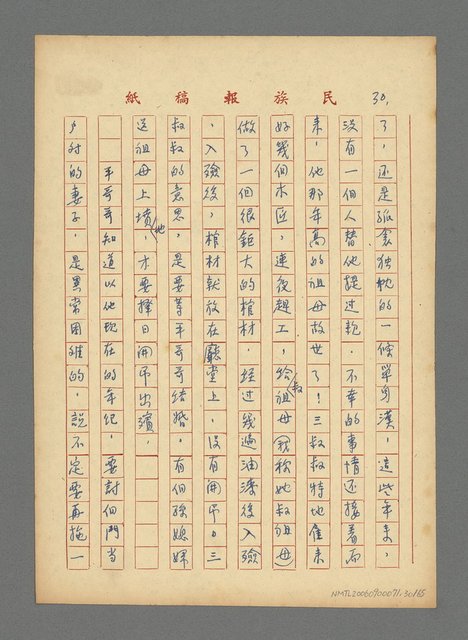 民族報稿紙
30.
了，还是孤衾独枕的一條單身漢，這些年来，
没有一個人替他提过親。不幸的事情还接着而
来，他那年高的祖母故世了！三叔叔特地僱来
好幾個木匠，連夜趕工，給叔祖母（我称她叔祖母）
做了一個很鉅大的棺材，経过幾遍油漆後入殮
，入殮後，棺材就放在廳堂上，没有開吊。三
叔叔的意思，是要等平哥哥結婚，有個孫媳婦
送祖母上墳，他才要擇日開吊出殯。
平哥哥知道以他現在的年紀，要討個門当
户对的妻子，是異常困难的，說不定要再拖一
NMTL20060700071.30/65